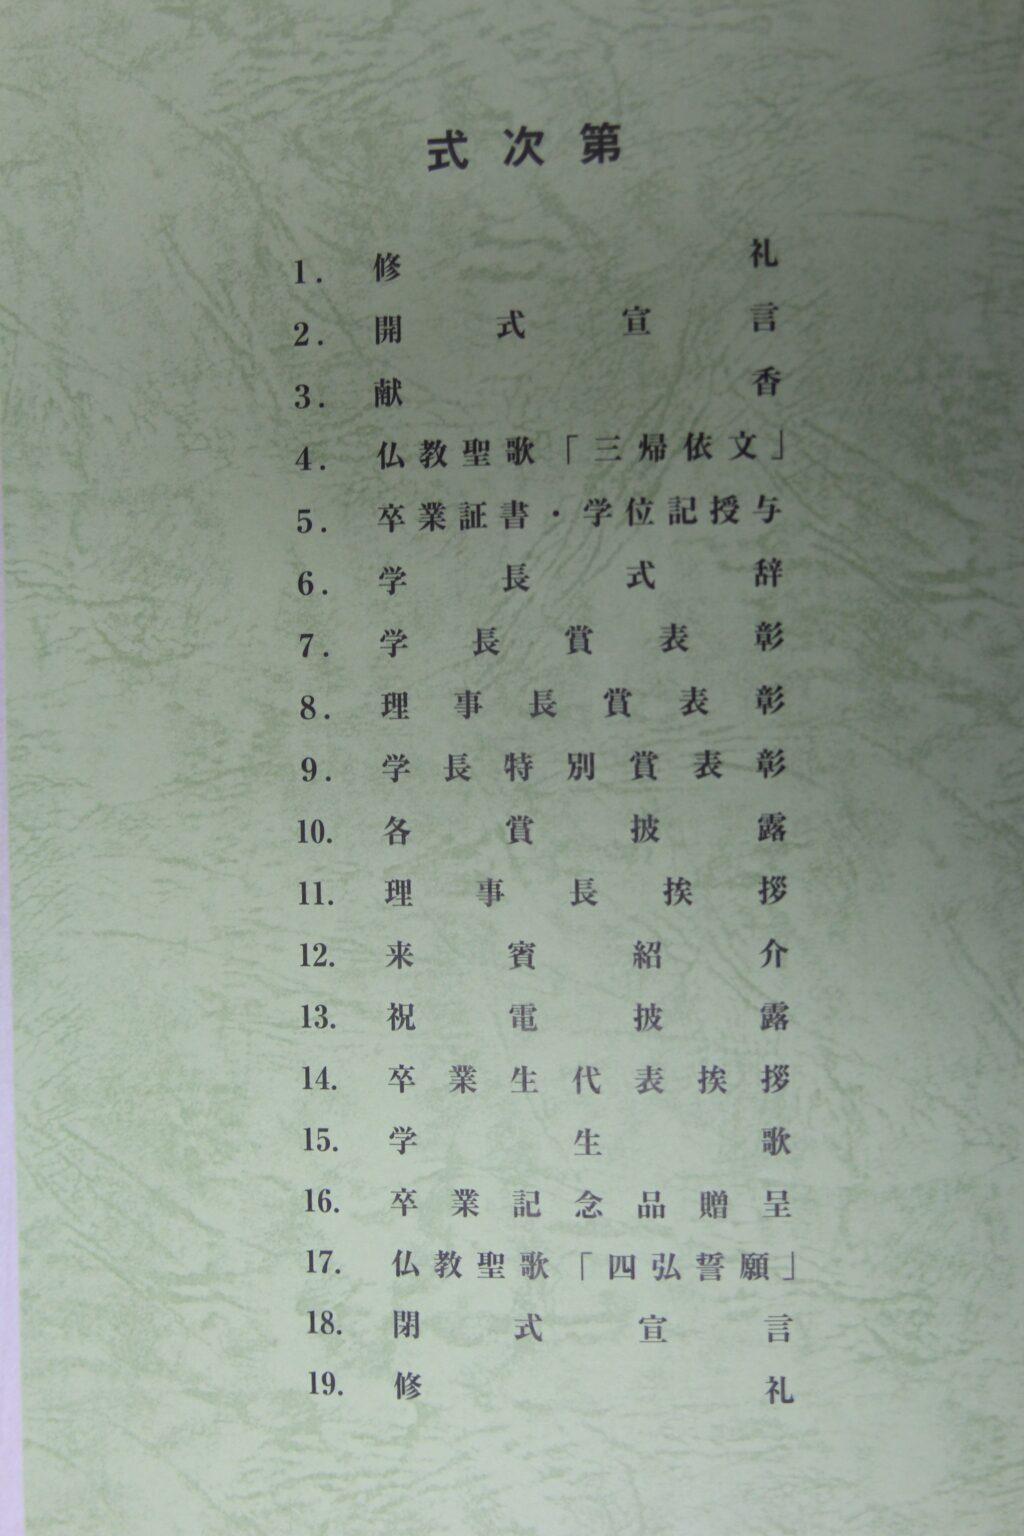 式次第
1. 修礼
2. 開式宣言
3. 献香
4. 仏教聖歌「三帰依文」
5. 卒業証書・学位記授与
6. 学長式辞
7. 学長賞表彰
8. 理事長賞表彰
9. 学長特別賞表彰
10. 各賞披露
11. 理事長挨拶
12. 来賓紹介
13. 祝電披露
14. 卒業生代表挨拶
15. 学生歌
16. 卒業記念品贈呈
17. 仏教聖歌「四弘誓願」
18. 閉式宣言
19. 修礼